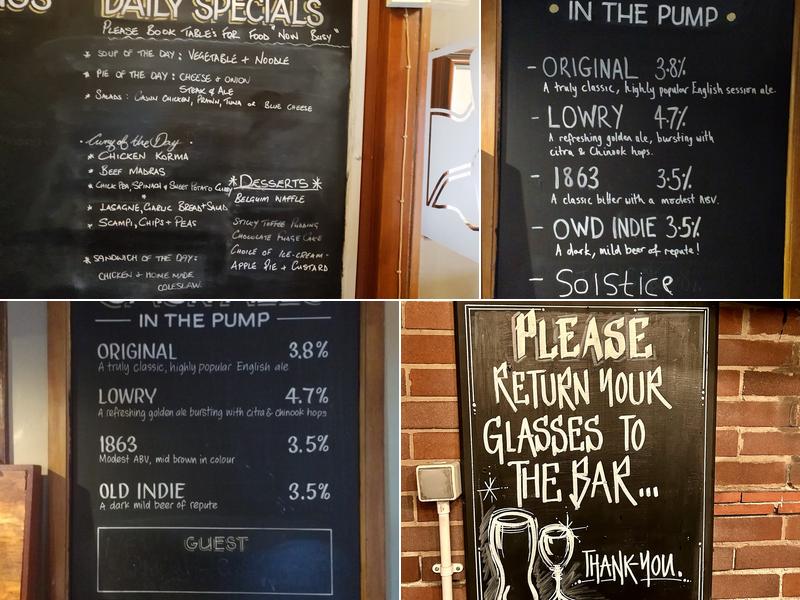 DAILY SPECIALS
PLEASE BOOK TABLE'S FOR FOOD "NOW BUSY"
* SOUP OF THE DAY: VEGETABLE + NOODLE
* PIE OF THE DAY: CHEESE & ONION
STEAK & ALE
* SALADS: CAJUN CHICKEN, PRAWN, TUNA OR BLUE CHEESE
· Curry of the Day ·
* CHICKEN KORMA
* BEEF MADRAS
* CHICK PEA, SPINACH & SWEET POTATO CURRY
* LASAGNE, GARLIC BREAD + SALAD
* SCAMPI, CHIPS + PEAS
* SANDWICH OF THE DAY:
CHICKEN + HOME MADE
COLESLAW
* DESSERTS *
BELGIUM WAFFLE
STICKY TOFFEE PUDDING
CHOCOLATE FUDGE CAKE
CHOICE OF ICE-CREAM-
APPLE PIE + CUSTARD
• IN THE PUMP •
- ORIGINAL 3.8%
A truly classic, highly popular English session ale.
- LOWRY 4.7%
A refreshing golden ale, bursting with
citra & Chinook hops.
- 1863 3.5%
A classic bitter with a modest ABV.
- OWD INDIE 3.5%
A dark, mild beer of repute!
- Solstice
IN THE PUMP
ORIGINAL 3.8%
A truly classic, highly popular English ale
LOWRY 4.7%
A refreshing golden ale bursting with citra & chinook hops
1863 3.5%
Modest ABV, mid brown in colour
OLD INDIE 3.5%
A dark mild beer of repute
GUEST
PLEASE
RETURN YOUR
GLASSES TO
THE BAR...
THANK-YOU.